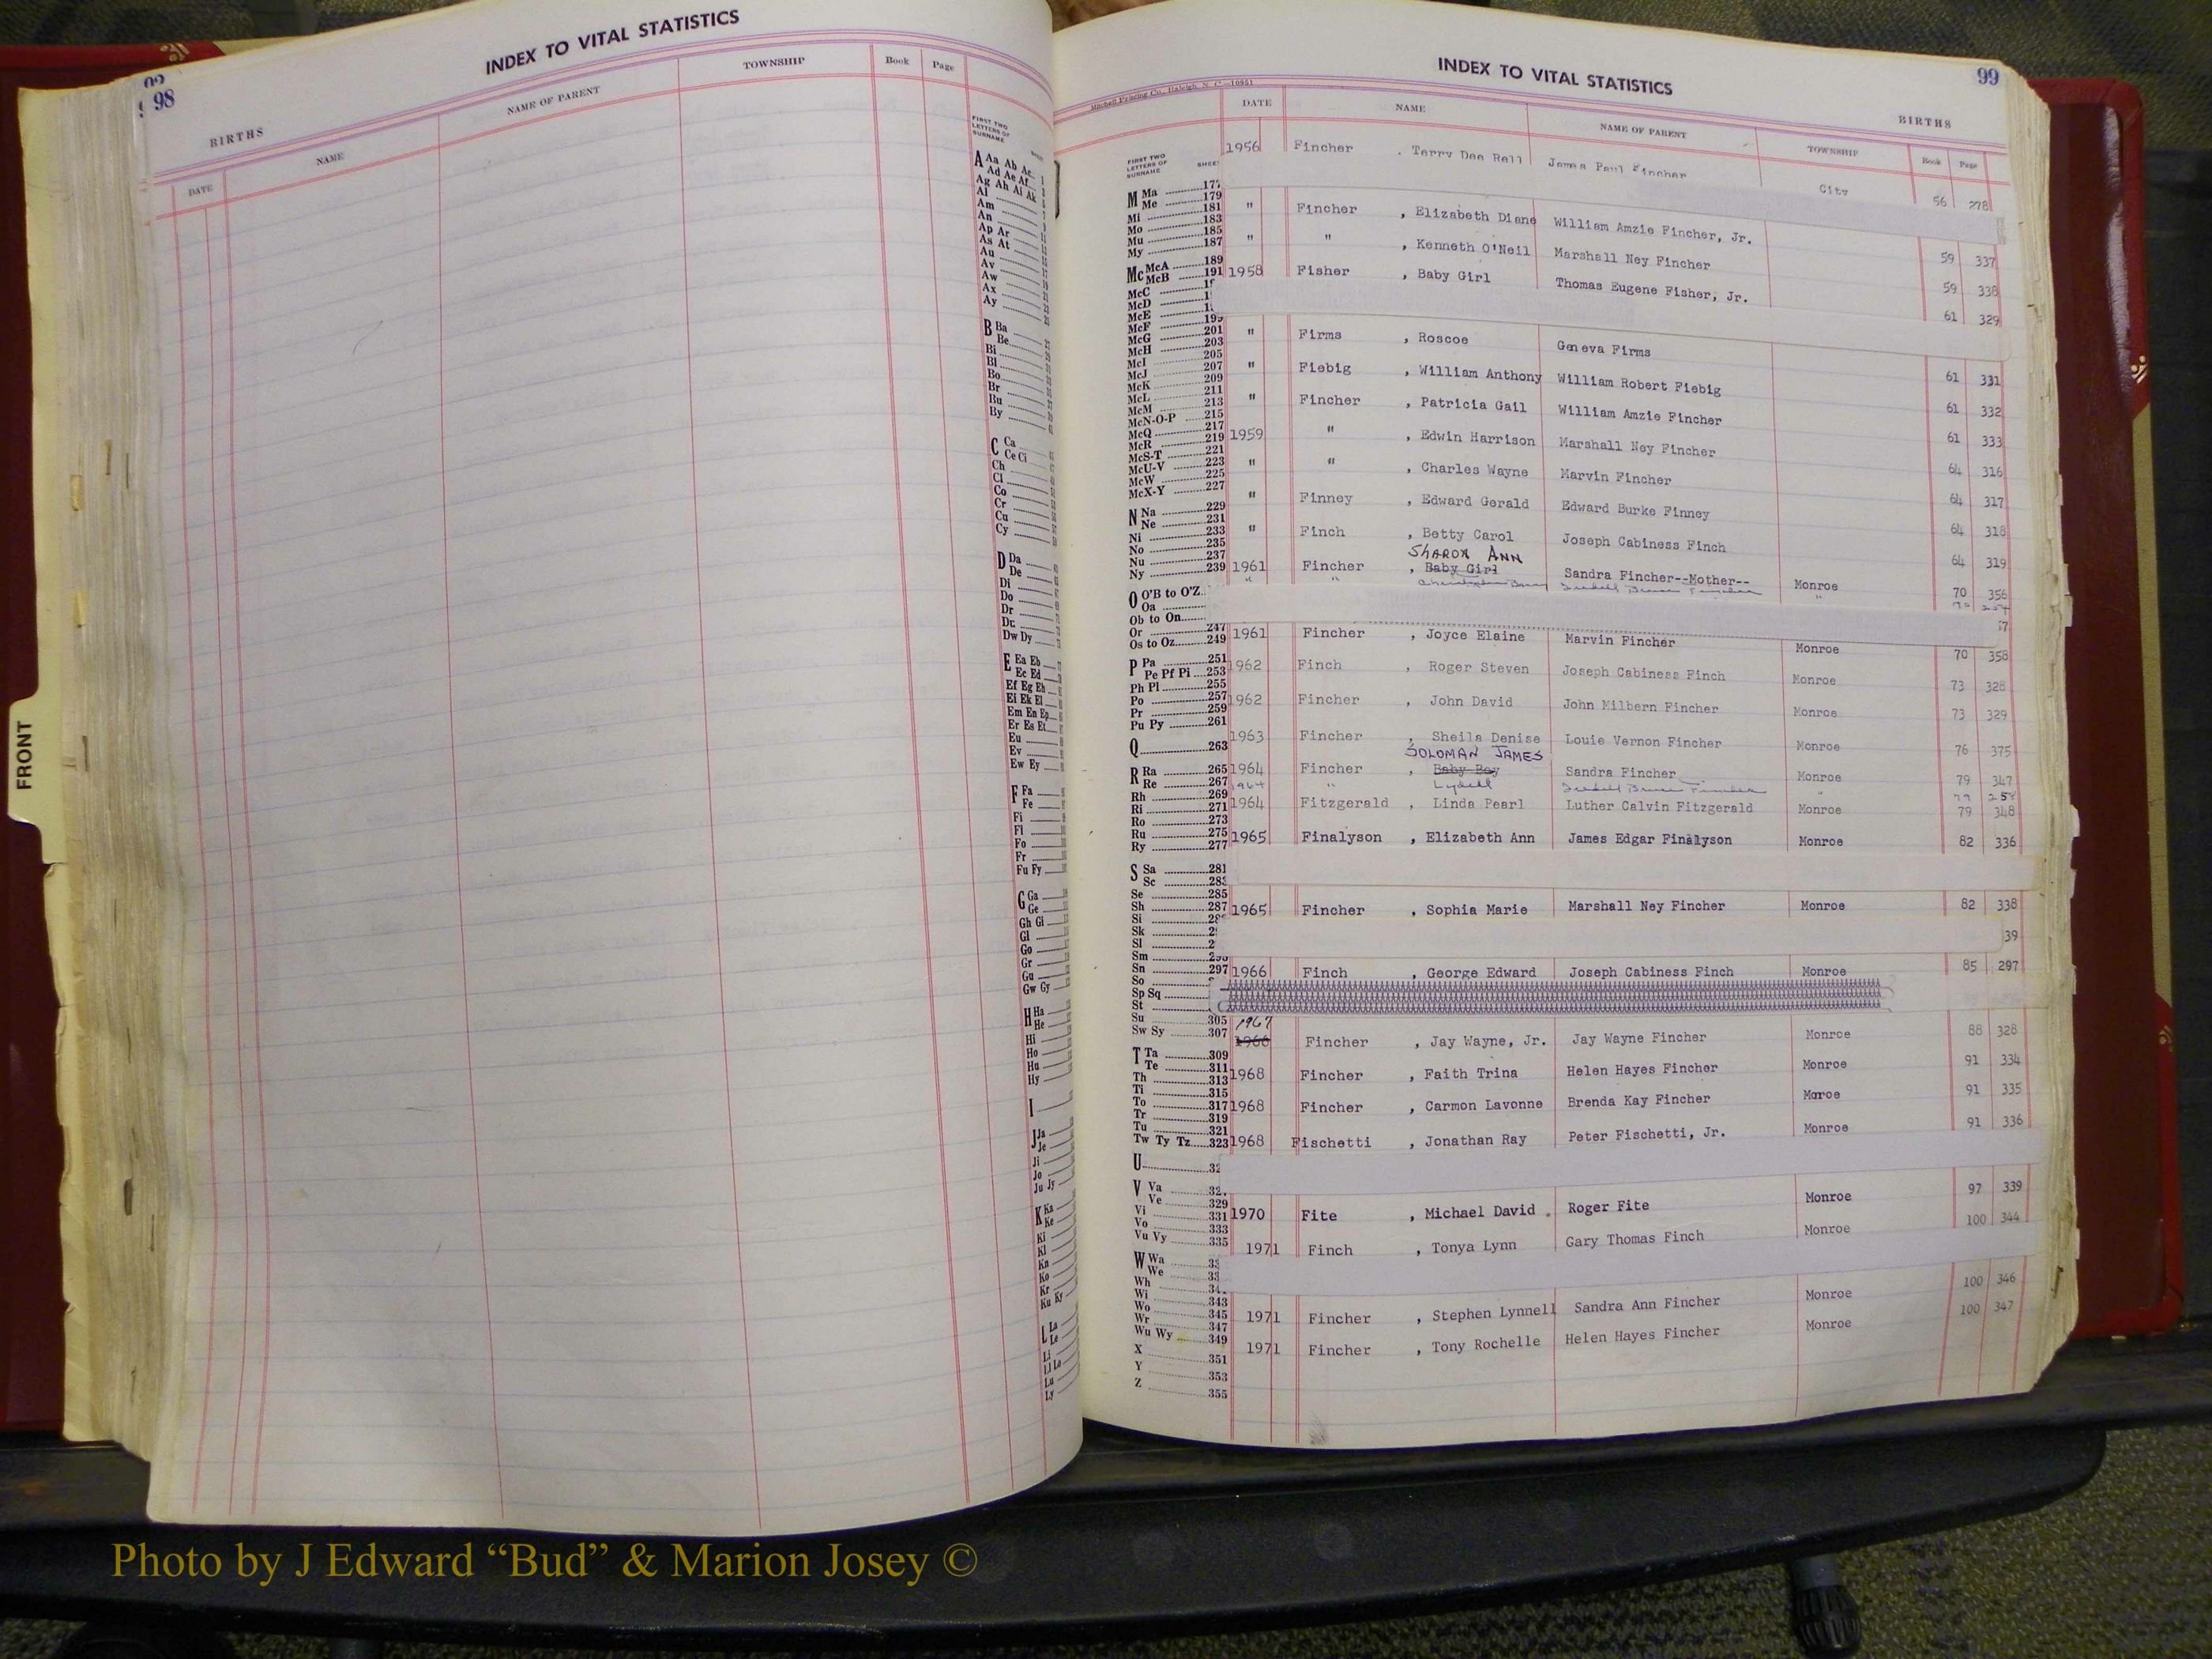 98
INDEX TO VITAL STATISTICS
BIRTHS
DATE NAME NAME OF PARENT TOWNSHIP Book Page
FIRST TWO
LETTERS OF
SURNAME
A Aa Ab Ac
Ad Ae Af
Ag Ah Ai Ak
Al
Am
An
Ap Ar
As At
Au
Av
Aw
Ax
Ay
B Ba
Be
Bi
Bl
Bo
Br
Bu
By
C Ca
Ce Ci
Ch
Cl
Co
Cr
Cu
Cy
D Da
De
Di
Do
Dr
Du
Dw Dy
E Ea Eb
Ec Ed
Ef Eg Eh
Ei Ek El
Em En Ep
Er Es Et
Eu
Ev
Ew Ey
F Fa
Fe
Fi
Fl
Fo
Fr
Fu Fy
G Ga
Ge
Gh Gi
Gl
Go
Gr
Gu
Gw Gy
H Ha
He
Hi
Ho
Hu
Hy
I
J Ja
Je
Ji
Jo
Ju Jy
K Ka
Ke
Ki
Kl
Kn
Ko
Kr
Ku Ky
L La
Le
Li
Ll Lo
Lu
Ly
FRONT
99
INDEX TO VITAL STATISTICS
Mitchell Printing Co., Raleigh, N. C.—10951
BIRTHS
DATE NAME NAME OF PARENT TOWNSHIP Book Page
FIRST TWO
LETTERS OF
SURNAME SHEET
M Ma 177
Me 179
Mi 181
Mo 183
Mu 185
My 187
Mc McA 189
McB 191
McC
McD
McE
McF 199
McG 201
McH 203
McI 205
McJ 207
McK 209
McL 211
McM 213
McN-O-P 215
McQ 217
McR 219
McS-T 221
McU-V 223
McW 225
McX-Y 227
N Na 229
Ne 231
Ni 233
No 235
Nu 237
Ny 239
O O'B to O'Z
Oa
Ob to On
Or 247
Os to Oz 249
P Pa 251
Pe Pf Pi 253
Ph Pl 255
Po 257
Pr 259
Pu Py 261
Q 263
R Ra 265
Re 267
Rh 269
Ri 271
Ro 273
Ru 275
Ry 277
S Sa 281
Sc
Se 285
Sh 287
Si
Sk
Sl
Sm
Sn 297
So
Sp Sq
St
Su 305
Sw Sy 307
T Ta 309
Te 311
Th 313
Ti 315
To 317
Tr 319
Tu 321
Tw Ty Tz 323
U
V Va
Ve 329
Vi 331
Vo 333
Vu Vy 335
W Wa
We
Wh
Wi 343
Wo 345
Wr 347
Wu Wy 349
X 351
Y 353
Z 355
1956 Fincher . Terry Dee Rell James Paul Fincher City 56 278
" Fincher , Elizabeth Diane William Amzie Fincher, Jr. 59 337
" " , Kenneth O'Neil Marshall Ney Fincher 59 338
1958 Fisher , Baby Girl Thomas Eugene Fisher, Jr. 61 329
" Firms , Roscoe Geneva Firms 61 331
" Fiebig , William Anthony William Robert Fiebig 61 332
" Fincher , Patricia Gail William Amzie Fincher 61 333
1959 " , Edwin Harrison Marshall Ney Fincher 64 316
" " , Charles Wayne Marvin Fincher 64 317
" Finney , Edward Gerald Edward Burke Finney 64 318
" Finch , Betty Carol Joseph Cabiness Finch 64 319
SHARON ANN
1961 Fincher , Baby Girl Sandra Fincher--Mother-- Monroe 70 356
1961 Fincher , Joyce Elaine Marvin Fincher Monroe 70 358
1962 Finch , Roger Steven Joseph Cabiness Finch Monroe 73 328
1962 Fincher , John David John Milbern Fincher Monroe 73 329
1963 Fincher , Sheila Denise Louie Vernon Fincher Monroe 76 375
SOLOMAN JAMES
1964 Fincher , Baby Boy Sandra Fincher Monroe 79 347
1964 " Lydell
1964 Fitzgerald , Linda Pearl Luther Calvin Fitzgerald Monroe 79 348
1965 Finalyson , Elizabeth Ann James Edgar Finalyson Monroe 82 336
1965 Fincher , Sophia Marie Marshall Ney Fincher Monroe 82 338
39
1966 Finch , George Edward Joseph Cabiness Finch Monroe 85 297
1967
1966 Fincher , Jay Wayne, Jr. Jay Wayne Fincher Monroe 88 328
1968 Fincher , Faith Trina Helen Hayes Fincher Monroe 91 334
1968 Fincher , Carmon Lavonne Brenda Kay Fincher Moroe 91 335
1968 Fischetti , Jonathan Ray Peter Fischetti, Jr. Monroe 91 336
1970 Fite , Michael David . Roger Fite Monroe 97 339
1971 Finch , Tonya Lynn Gary Thomas Finch Monroe 100 344
1971 Fincher , Stephen Lynnell Sandra Ann Fincher Monroe 100 346
1971 Fincher , Tony Rochelle Helen Hayes Fincher Monroe 100 347
Photo by J Edward “Bud” & Marion Josey ©